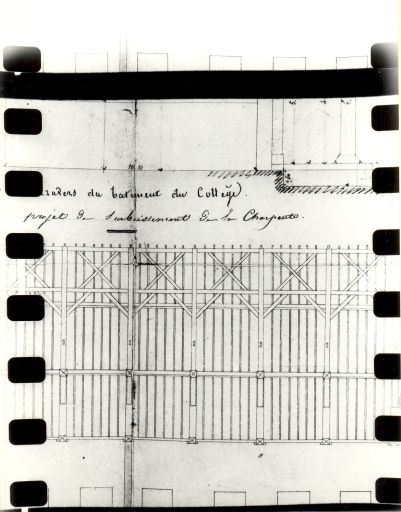 travers du batiment du Collége.
projet de Surbaissement de la Charpente.